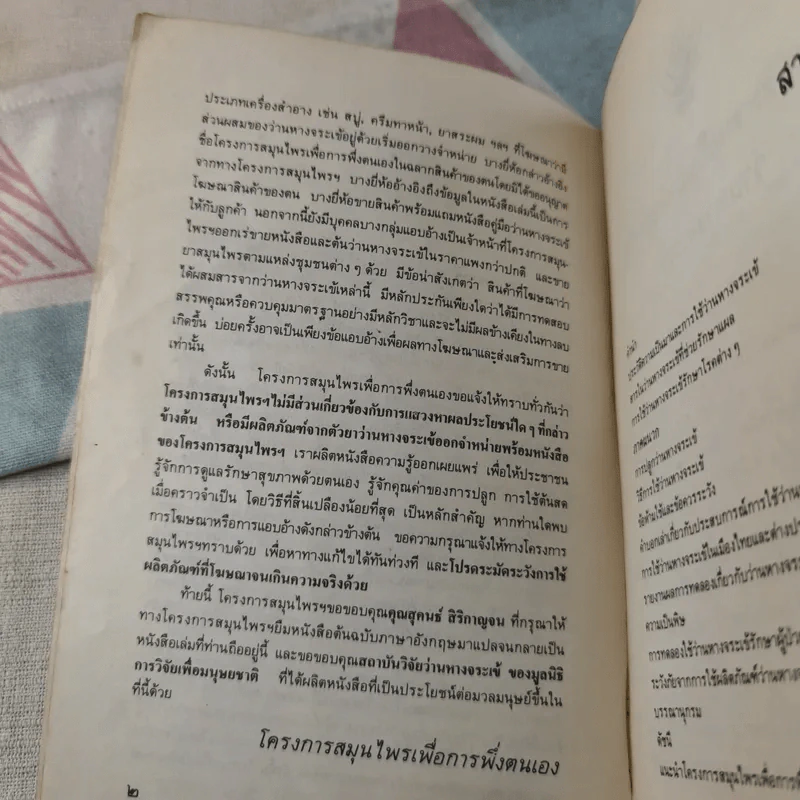 ประเภทเครื่องสำอาง เช่น สบู่, ครีมทาหน้า, ยาสระผม ฯลฯ ที่โฆษณาว่ามี
ส่วนผสมของว่านหางจระเข้อยู่ด้วยเริ่มออกวางจำหน่าย บางยี่ห้อกล่าวอ้างถึง
ชื่อโครงการสมุนไพรเพื่อการพึ่งตนเองในฉลากสินค้าของตนโดยมิได้ขออนุญาต
จากทางโครงการสมุนไพรฯ บางยี่ห้ออ้างอิงถึงข้อมูลในหนังสือเล่มนี้เป็นการ
โฆษณาสินค้าของตน บางยี่ห้อขายสินค้าพร้อมแถมหนังสือคู่มือว่านหางจระเข้
ให้กับลูกค้า นอกจากนี้ยังมีบุคคลบางกลุ่มแอบอ้างเป็นเจ้าหน้าที่โครงการสมุน-
ไพรฯออกเร่ขายหนังสือและต้นว่านหางจระเข้ในราคาแพงกว่าปกติ และขาย
ยาสมุนไพรตามแหล่งชุมชนต่างๆด้วย มีข้อน่าสังเกตว่า สินค้าที่โฆษณาว่า
ได้ผสมสารจากว่านหางจระเข้เหล่านี้ มีหลักประกันเพียงใดว่าได้มีการทดสอบ
สรรพคุณหรือควบคุมมาตรฐานอย่างมีหลักวิชาและจะไม่มีผลข้างเคียงในทางลบ
เกิดขึ้น บ่อยครั้งอาจเป็นเพียงข้อแอบอ้างเพื่อผลทางโฆษณาและส่งเสริมการขาย
เท่านั้น
ดังนั้น โครงการสมุนไพรเพื่อการพึ่งตนเองขอแจ้งให้ทราบทั่วกันว่า
โครงการสมุนไพรฯไม่มีส่วนเกี่ยวข้องกับการแสวงหาผลประโยชน์ใดๆที่กล่าว
ข้างต้น หรือมีผลิตภัณฑ์จากตัวยาว่านหางจระเข้ออกจำหน่ายพร้อมหนังสือ
ของโครงการสมุนไพรฯ เราผลิตหนังสือความรู้ออกเผยแพร่ เพื่อให้ประชาชน
รู้จักการดูแลรักษาสุขภาพด้วยตนเอง รู้จักคุณค่าของการปลูก การใช้ต้นสด
เมื่อคราวจำเป็น โดยวิธีที่สิ้นเปลืองน้อยที่สุด เป็นหลักสำคัญ หากท่านใดพบ
การโฆษณาหรือการแอบอ้างดังกล่าวข้างต้น ขอความกรุณาแจ้งให้ทางโครงการ
สมุนไพรฯทราบด้วย เพื่อหาทางแก้ไขได้ทันท่วงที และโปรดระมัดระวังการใช้
ผลิตภัณฑ์ที่โฆษณาจนเกินความจริงด้วย
ท้ายนี้ โครงการสมุนไพรฯขอขอบคุณคุณสุคนธ์ สิริกาญจน ที่กรุณาให้
ทางโครงการสมุนไพรฯยืมหนังสือต้นฉบับภาษาอังกฤษมาแปลจนกลายเป็น
หนังสือเล่มที่ท่านถืออยู่นี้ และขอขอบคุณสถาบันวิจัยว่านหางจระเข้ ของมูลนิธิ
การวิจัยเพื่อมนุษยชาติ ที่ได้ผลิตหนังสือที่เป็นประโยชน์ต่อมวลมนุษย์ขึ้นใน
ที่นี้ด้วย
โครงการสมุนไพรเพื่อการพึ่งตนเอง
๒
สา
คำนำ
ประวัติความเป็นมาและการใช้ว่านหางจระเข้
สารในว่านหางจระเข้ที่ช่วยรักษาแผล
การใช้ว่านหางจระเข้รักษาโรคต่างๆ
ภาคผนวก
การปลูกว่านหางจระเข้
วิธีการใช้ว่านหางจระเข้
ข้อห้ามใช้และข้อควรระวัง
คำบอกเล่าเกี่ยวกับประสบการณ์การใช้ว่าน
การใช้ว่านหางจระเข้ในเมืองไทยและต่างประ
รายงานผลการทดลองเกี่ยวกับว่านหางจระเ
ความเป็นพิษ
การทดลองใช้ว่านหางจระเข้รักษาผู้ป่วย
ระวังภัยจากการใช้ผลิตภัณฑ์ว่านหาง
บรรณานุกรม
ดัชนี
แนะนำโครงการสมุนไพรเพื่อการพึ่